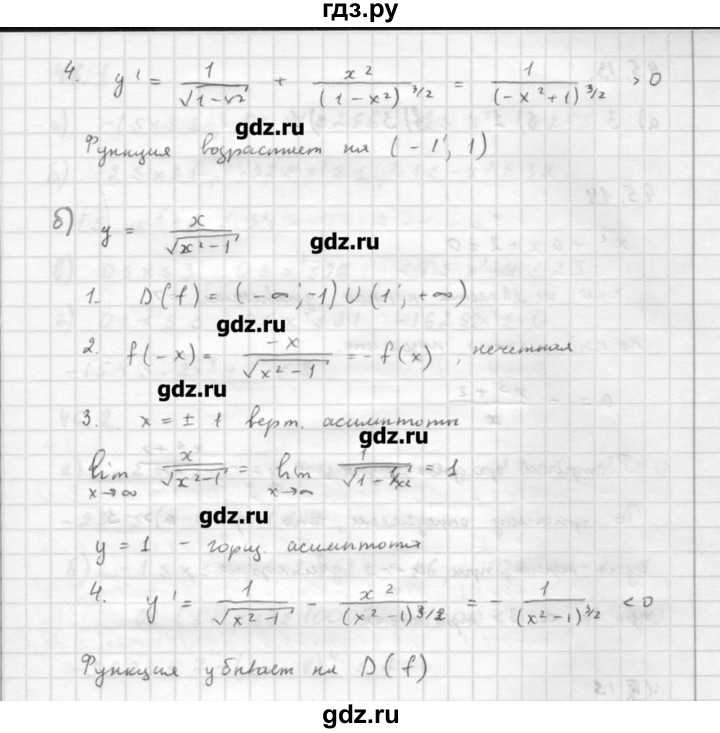 гдз.ру
4. y' = 1/√(1-x²) + x²/(1-x²)^(3/2) = 1/(-x²+1)^(3/2) > 0
gdz.ru
Функция возрастает на (-1; 1)
б) y = x/√(x²-1)
gdz.ru
1. D(f) = (-∞; -1) ∪ (1; +∞)
gdz.ru
2. f(-x) = -x/√(x²-1) = -f(x), нечетная
gdz.ru
3. x = ± 1 верт. асимптоты
gdz.ru
lim x→∞ x/√(x²-1) = lim x→∞ 1/√(1-1/x²) = 1
gdz.ru
y = 1 - гориз. асимптота
4. y' = 1/√(x²-1) - x²/(x²-1)^(3/2) = - 1/(x²-1)^(3/2) < 0
Функция убывает на D(f)
gdz.ru